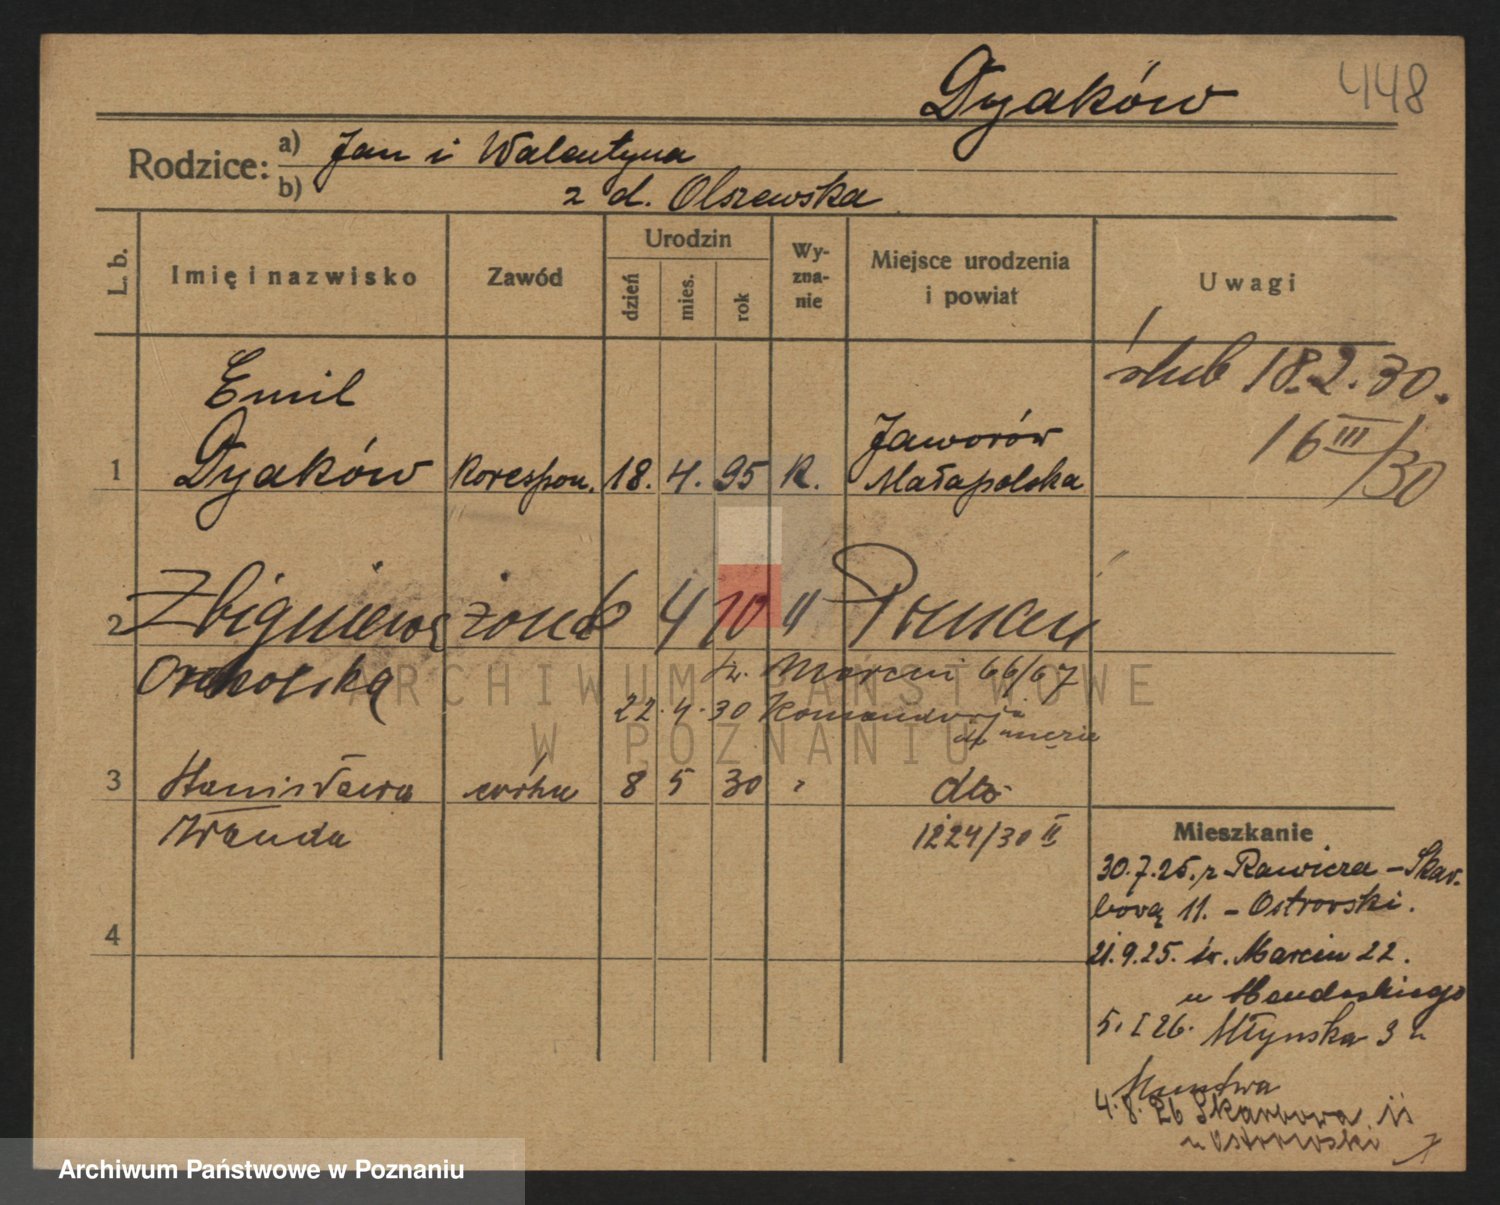 Dyaków 448
Rodzice: a) Jan i Walentyna
b) z d. Olszewska
L. b. Imię i nazwisko Zawód Urodzin dzień mies. rok Wy-zna-nie Miejsce urodzenia i powiat Uwagi
ślub 18.2.30.
16 III/30
Emil
1 Dyaków Korespon. 18. 4. 95 K. Jaworów
Małapolska
2 żona 6 4 10 "
św. Marcin 66/67
22.4.30
3 Stanisława córka 8 5 30 " dto
Wanda 1224/30 II
4
Mieszkanie
30.7.25. z Rawicza - Skar-
bową 11. - Ostrowski.
21.9.25. św. Marcin 22.
u
5. I 26. Młyńska 3 u
4.8.26 Skarbowa 11
u Ostrowski
ARCHIWUM PAŃSTWOWE
W POZNANIU
Archiwum Państwowe w Poznaniu